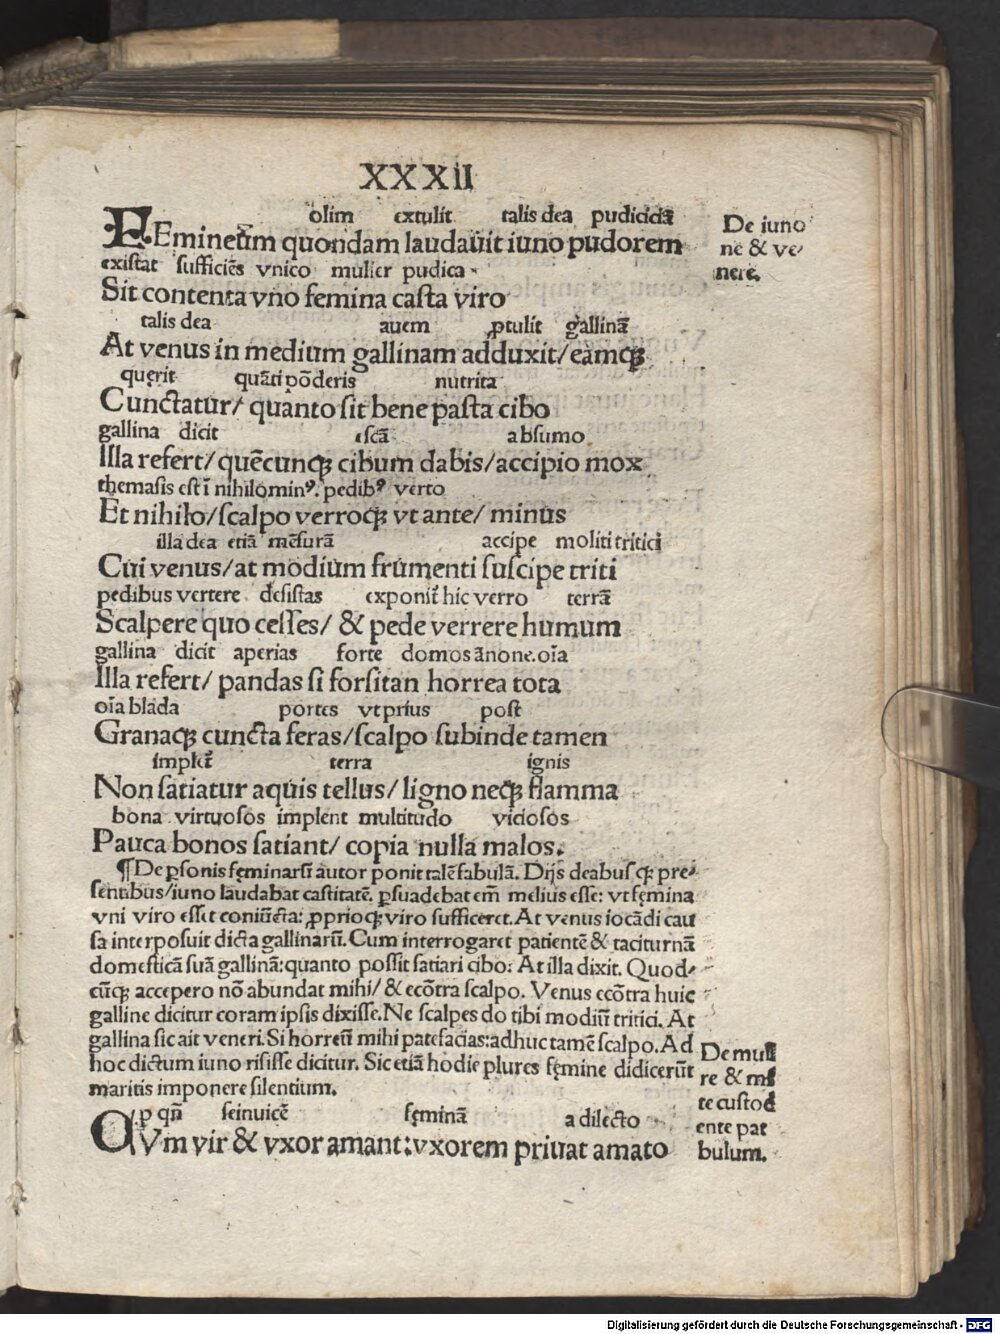 XXXII
olim extulit talis dea pudiciciā
FEmineūm quondam laudauit iuno pudorem
De iuno
ne & ve-
nere.
existat sufficiēs vnico mulier pudica
Sit contenta vno femina casta viro
talis dea auem ꝓtulit gallinā
At venus in medium gallinam adduxit/ eamqꝫ
querit quāti pōderis nutrita
Cunctatur/ quanto sit bene pasta cibo
gallina dicit escā absumo
Illa refert/ quēcunqꝫ cibum dabis/ accipio mox
themasis est ī nihilominꝰ. pedibꝰ verto
Et nihilo/ scalpo verroqꝫ vt ante/ minus
illa dea etiā mēsurā accipe moliti tritici
Cui venus/ at modium frumenti suscipe triti
pedibus vertere desistas exponit̄ hic verro terrā
Scalpere quo cesses/ & pede verrere humum
gallina dicit aperias forte domos ānone. oīa
Illa refert/ pandas si forsitan horrea tota
oīa blada portes vt prius post
Granaqꝫ cuncta feras/ scalpo subinde tamen
implet̄ terra ignis
Non satiatur aquis tellus/ ligno neqꝫ flamma
bona virtuosos implent multitudo viciosos
Pauca bonos satiant/ copia nulla malos.
¶De ꝑsonis feminarū autor ponit talē fabulā. Dijs deabusqꝫ pre-
sentibus/ iuno laudabat castitatē. ꝑsuadebat em̄ melius esse: vt femina
vni viro esset coniūcta: ꝓprioqꝫ viro sufficeret. At venus iocādi cau
sa interposuit dicta gallinarū. Cum interrogaret patientē & taciturnā
domesticā suā gallinā: quanto possit satiari cibo: At illa dixit. Quod-
cūqꝫ accepero nō abundat mihi/ & ecōtra scalpo. Venus ecōtra huic
galline dicitur coram ipsis dixisse. Ne scalpes do tibi modiū tritici. At
gallina sic ait veneri. Si horreū mihi patefacias: adhuc tamē scalpo. Ad
hoc dictum iuno risisse dicitur. Sic etiā hodie plures femine didicerūt
maritis imponere silentium.
De mul
re & m
te custod
ente pat
bulum.
.p qn̄ seinuicē feminā a dilecto
QVm vir & vxor amant: vxorem priuat amato
Digitalisierung gefördert durch die Deutsche Forschungsgemeinschaft - DFG